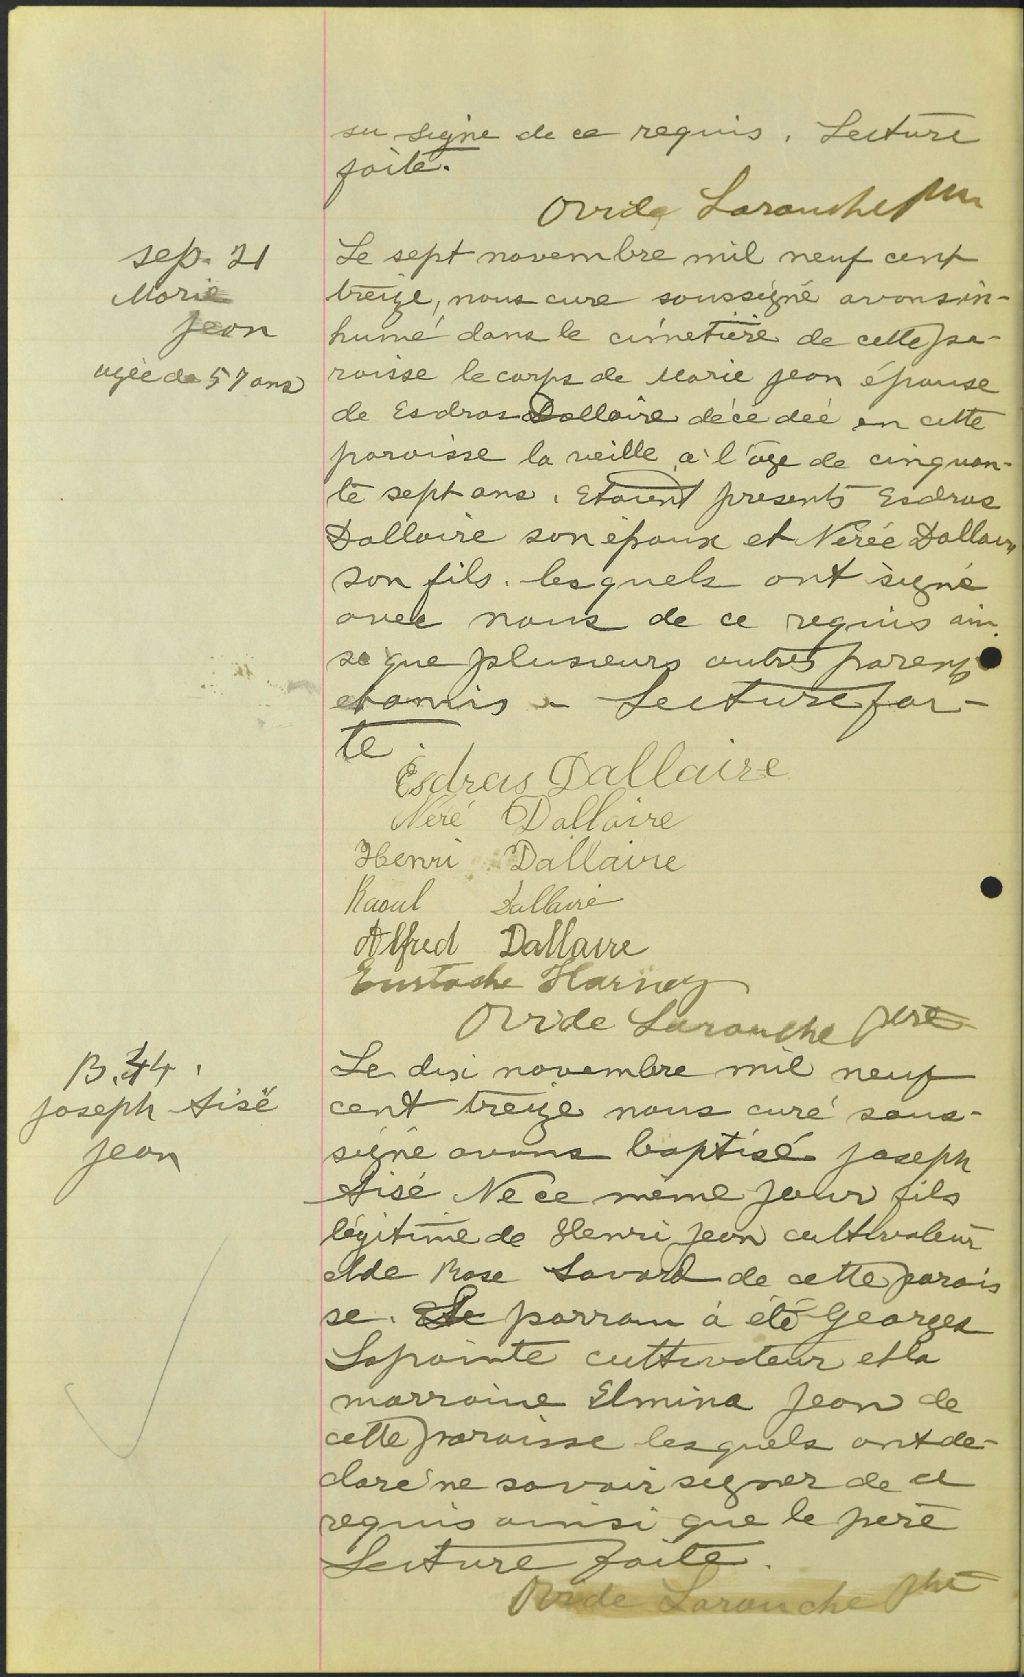 su signé de ce requis. Lecture
faite.
Ovide Larouche ptre
sep. 21
Marie
Jean
agée de 57 ans
Le sept novembre mil neuf cent
treize, nous curé soussigné avons in-
humé dans le cimetière de cette pa-
roisse le corps de Marie Jean épouse
de Esdras Dallaire décédée en cette
paroisse la veille, à l'âge de cinquan-
te sept ans. Etaient presents Esdras
Dallaire son époux et Nérée Dallaire
son fils. lesquels ont signé
avec nous de ce requis ain
si que plusieurs autres parents
et amis - Lecture fai-
te.
Esdras Dallaire
Néré Dallaire
Henri Dallaire
Raoul Dallaire
Alfred Dallaire
Eustache Harvey
Ovide Larouche ptre
B. 44.
Joseph Aisé
Jean
Le dix novembre mil neuf
cent treize nous curé sous-
signé avons baptisé Joseph
Aisé Né ce même jour fils
légitime de Henri Jean cultivateur
et de Rose Savard de cette parois
se. Le parrain à été Georges
Lapointe cultivateur et la
marraine Elmina Jean de
cette paroisse lesquels ont dé-
claré ne savoir signer de ce
requis ainsi que le père
Lecture faite.
Ovide Larouche ptre